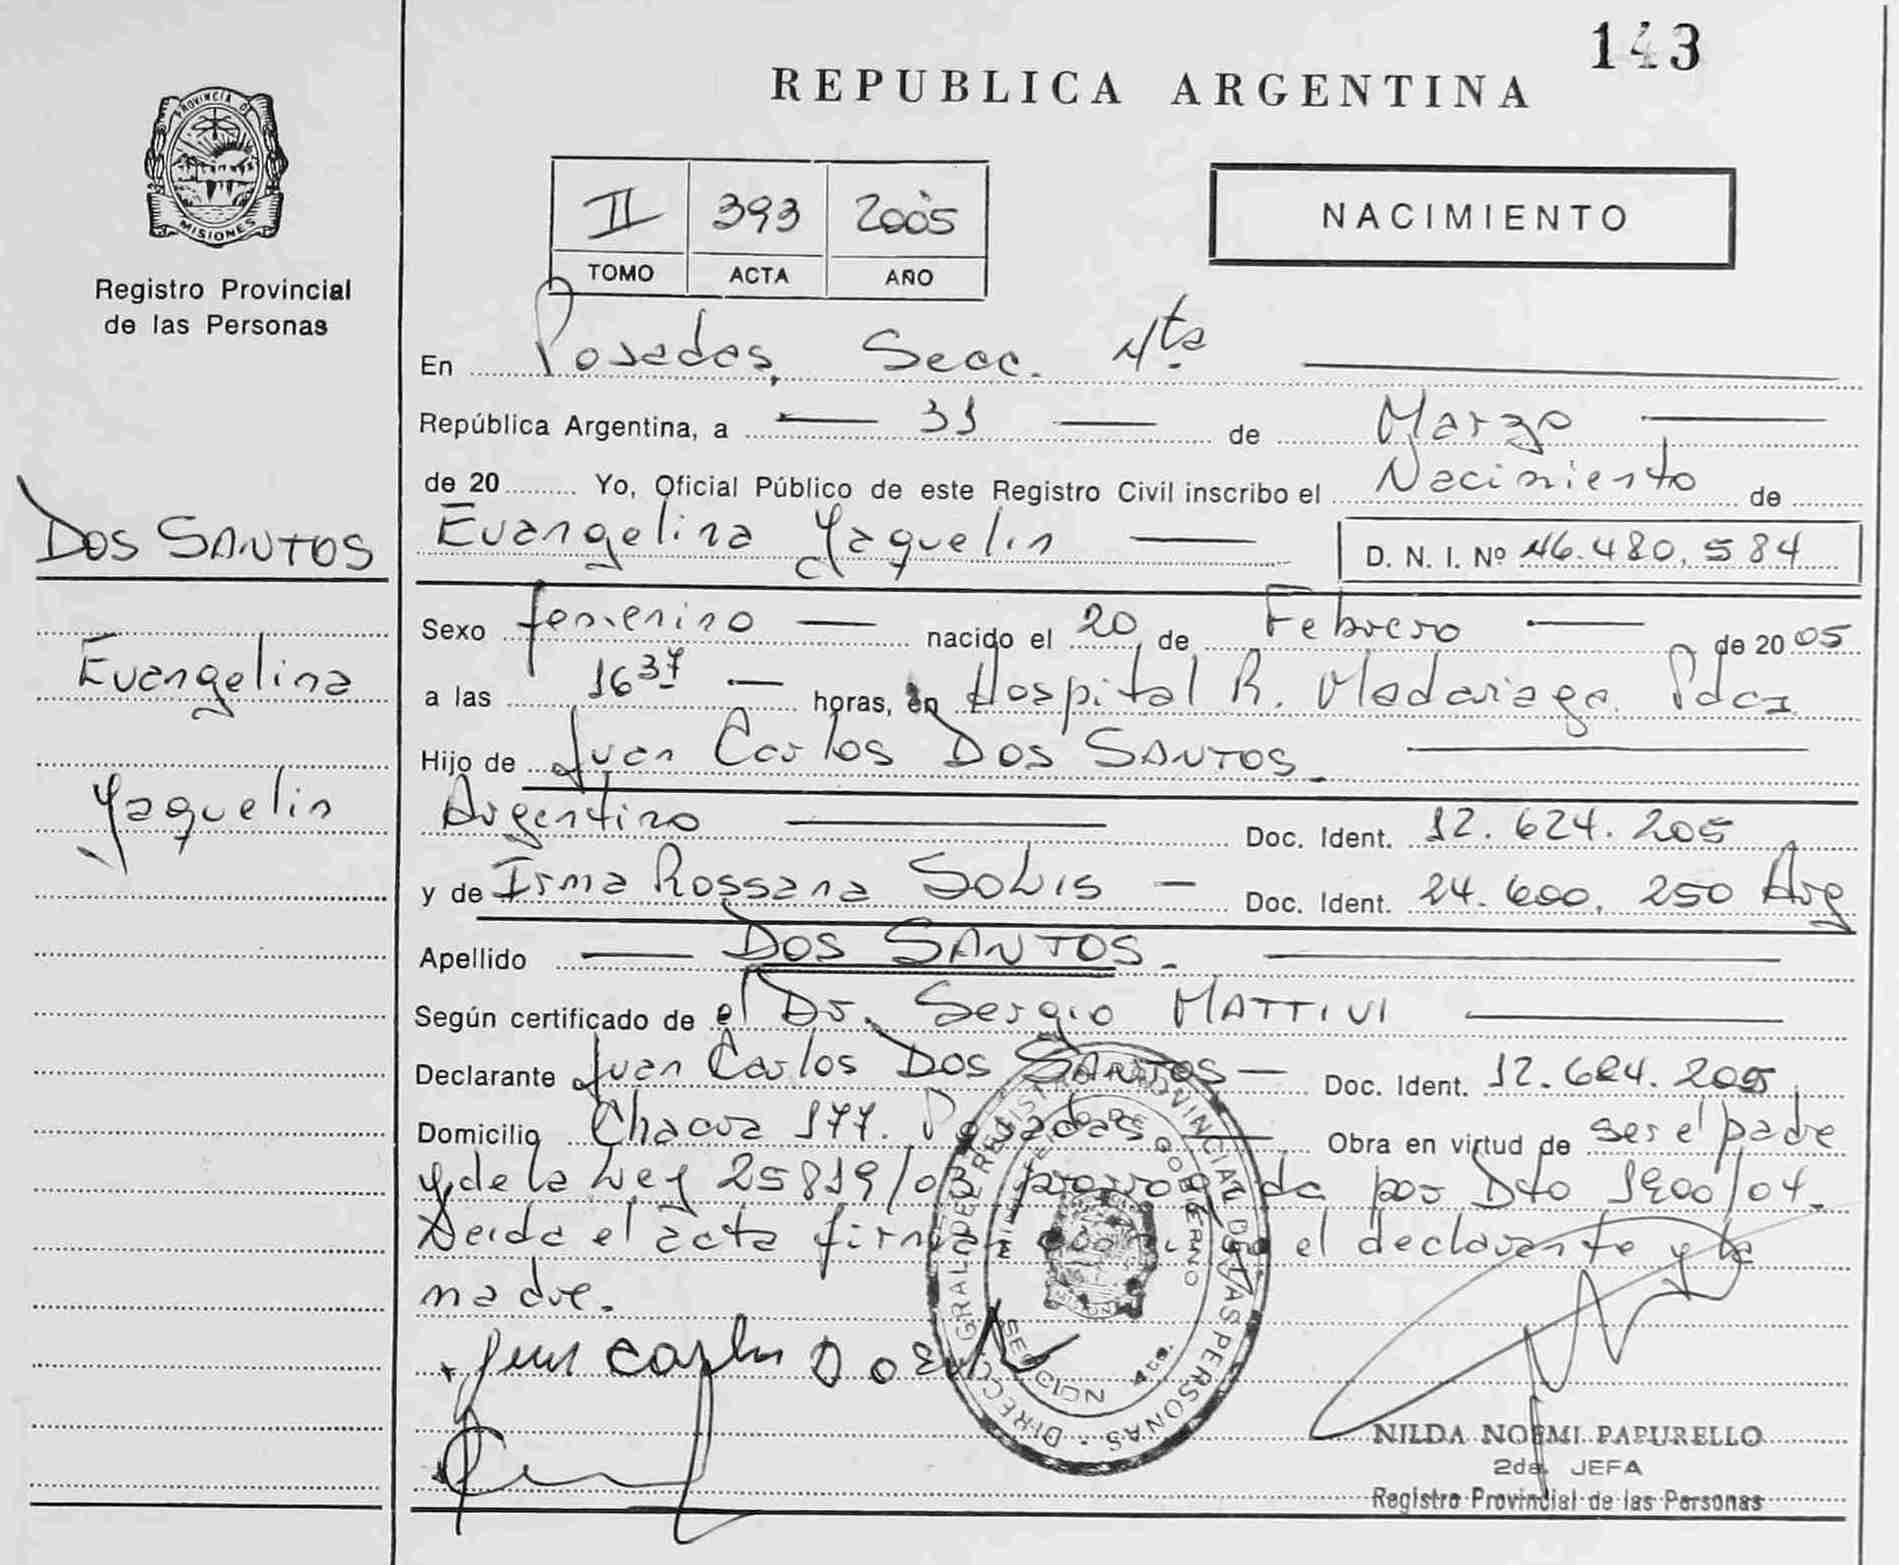 143
REPUBLICA ARGENTINA
PROVINCIA DE
MISIONES
Registro Provincial
de las Personas
II 393 2005
TOMO ACTA AÑO
NACIMIENTO
En Posadas, Secc. 4ta
República Argentina, a 31 de Marzo
de 20 Yo, Oficial Público de este Registro Civil inscribo el Nacimiento de
DOS SANTOS
Evangelina Yaquelin D. N. I. Nº 46.480.584
Sexo femenino nacido el 20 de Febrero de 2005
Evangelina
a las 16 37 horas, en Hospital R. Madariaga Pdas
Hijo de Juan Carlos DOS SANTOS
Yaquelin
Argentino Doc. Ident. 12.624.205
y de Irma Rossana SOLIS Doc. Ident. 24.600.250 Arg
Apellido DOS SANTOS
Según certificado de el Dr. Sergio MATTIVI
Declarante Juan Carlos DOS SANTOS Doc. Ident. 12.624.205
Domicilio Chacra 177. Posadas Obra en virtud de ser el padre
y de la Ley 25819/03 prorrogada por Dto 1900/04.
Leida el acta firma el declarante y la
madre.
DIRECC. GRAL. DE REGISTRO PROVINCIAL DE LAS PERSONAS
MINISTERIO DE GOBIERNO
SECCION 4ta.
Juan Carlos Dos
NILDA NOEMI PAPURELLO
2da. JEFA
Registro Provincial de las Personas